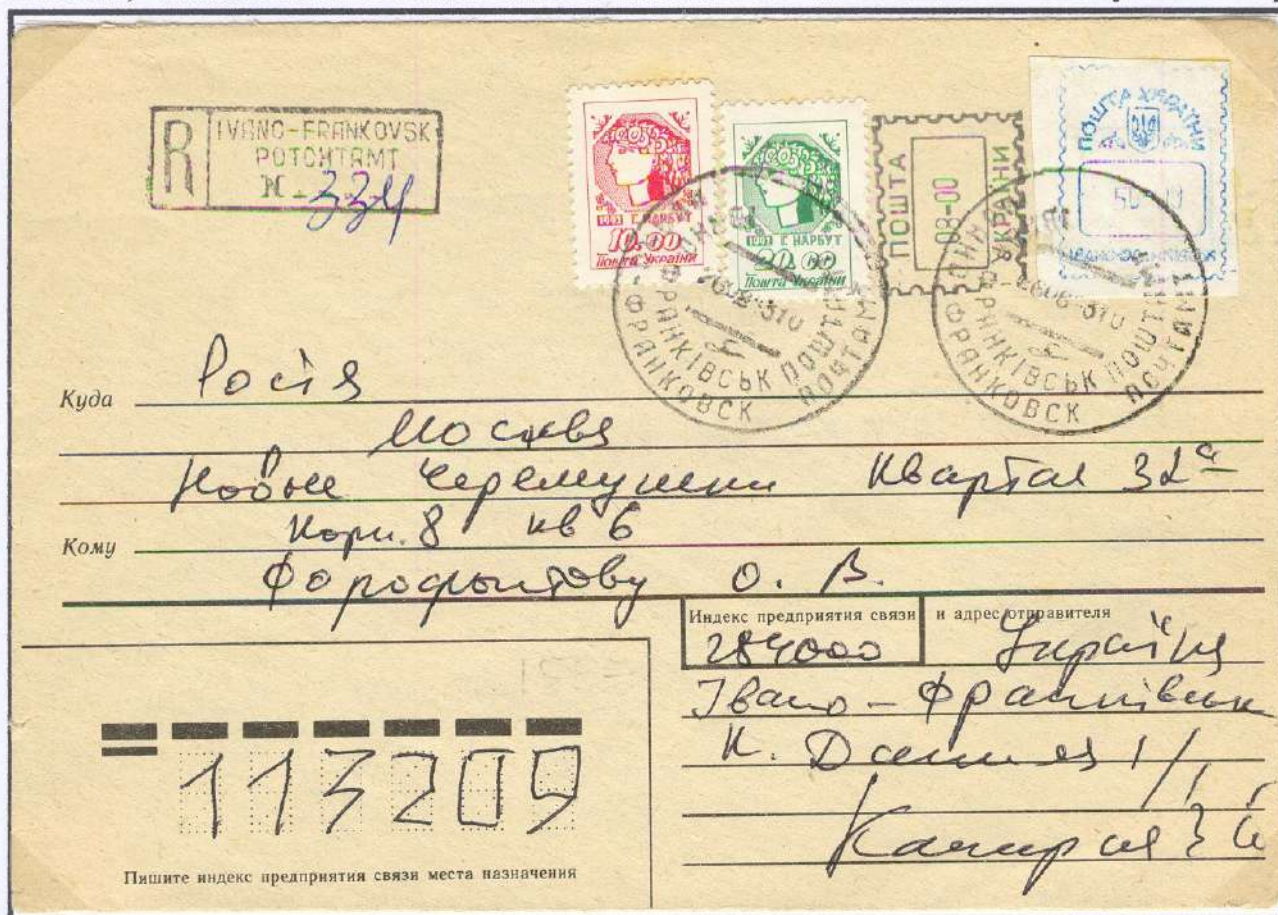 R IVANO-FRANKOVSK
POTCHTAMT
N-334
1992 Г. НАРБУТ
10.00
Пошта України
1992 Г. НАРБУТ
20.00
Пошта України
ПОШТА 03-00 УКРАЇНИ
ПОШТА УКРАЇНИ
ФРАНКІВСЬК ПОШТАМТ
ФРАНКОВСК ПОЧТАМТ
ФРАНКІВСЬК ПОШТАМТ
ФРАНКОВСК ПОЧТАМТ
Куда Росія
Москва
Новые Черемушки Квартал 32а
Кому Корп. 8 кв 6
О. В.
Индекс предприятия связи и адрес отправителя
284000 Україна
Івано-Франківськ
113209
Пишите индекс предприятия связи места назначения